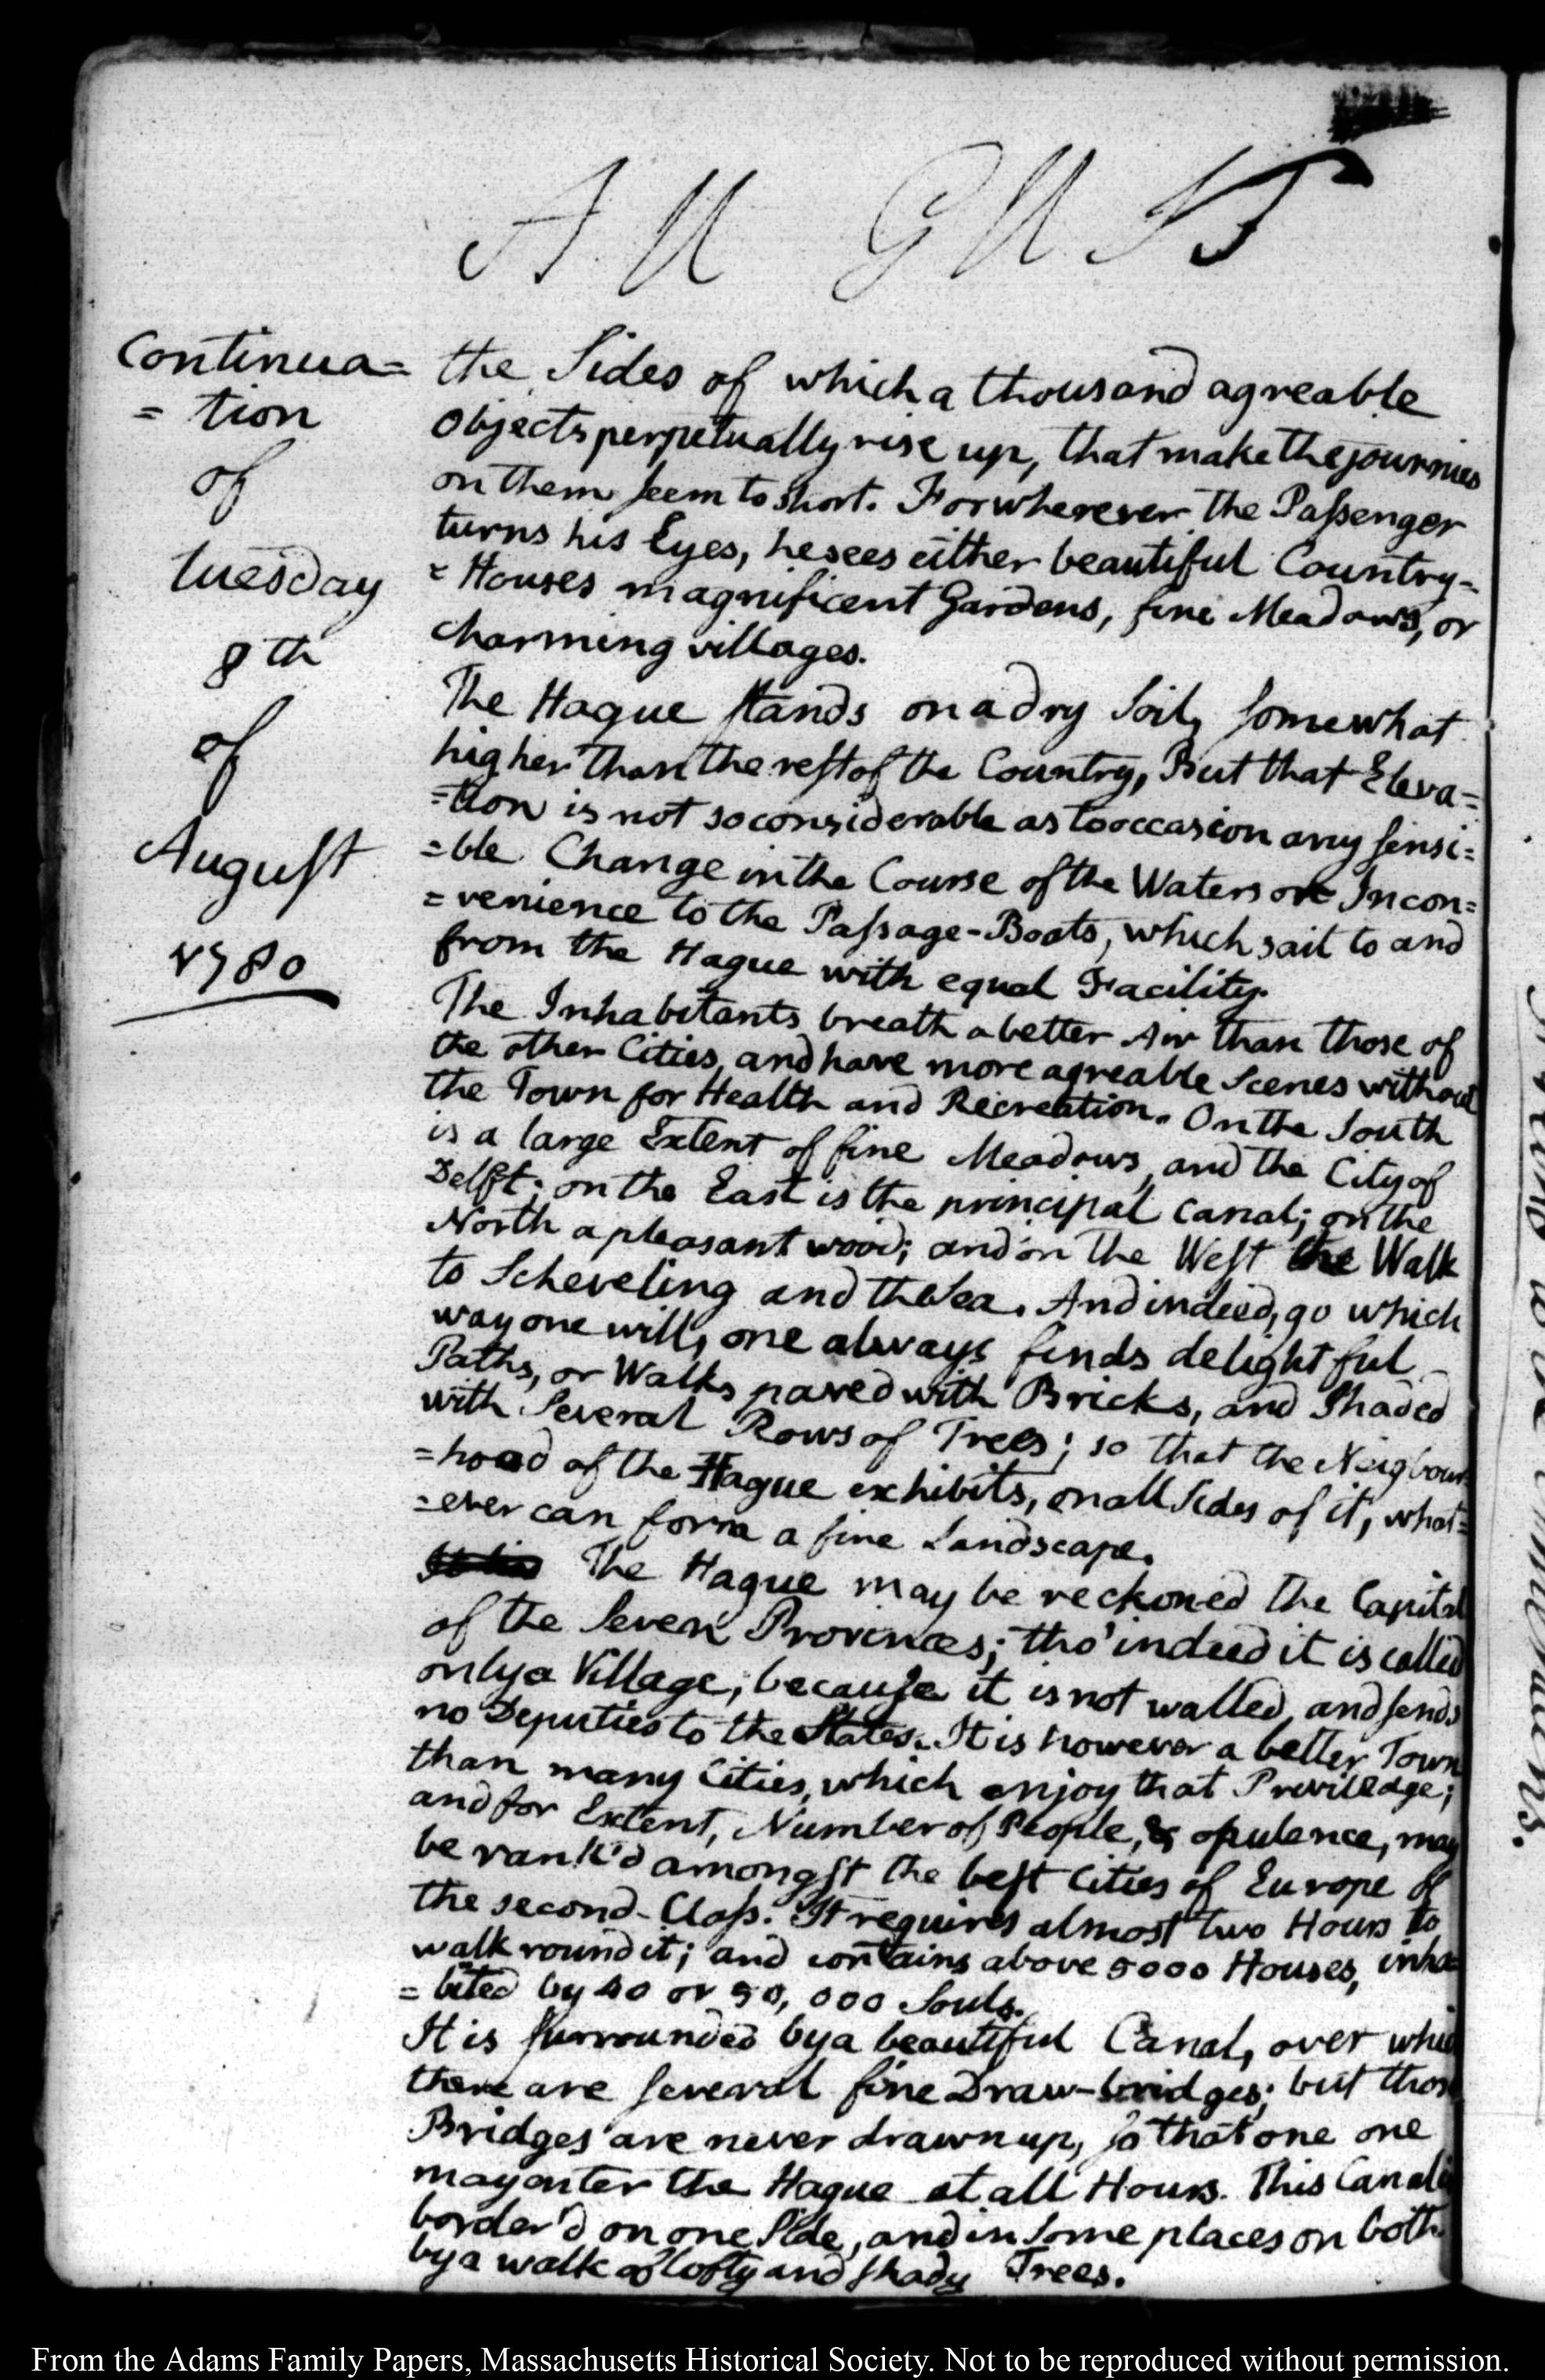 AUGUST
Continua=
=tion
of
tuesday
8th
of
August
1780
the Sides of which a thousand agreable
Objects perpetually rise up, that make the journies
on them seem to short. For wherever the Passenger
turns his Eyes, he sees either beautiful Country-
=Houses magnificent Gardens, fine Meadows, or
charming villages.
The Hague stands on a dry Soil, somewhat
higher than the rest of the Country, But that Eleva=
=tion is not so considerable as to occasion any sensi=
=ble Change in the Course of the Waters or Incon=
=venience to the Passage-Boats, which sail to and
from the Hague with equal Facility.
The Inhabitants breath a better Air than those of
the other Cities, and have more agreable Scenes without
the Town for Health and Recreation. On the South
is a large Extent of fine Meadows, and the City of
Delft; on the East is the principal Canal; on the
North a pleasant wood; and on the West the Walk
to Scheveling and the Sea. And indeed, go which
way one will, one always finds delightful
Paths, or Walks paved with Bricks, and Shaded
with Several Rows of Trees; so that the Neigbour
=hood of the Hague exhibits, on all Sides of it, what=
=ever can form a fine Landscape.
The Hague may be reckoned the Capital
of the Seven Provinces; tho' indeed it is called
only a Village, because it is not walled, and sends
no Deputies to the States. It is however a better Town
than many Cities, which enjoy that Priviledge;
and for Extent, Number of People, & opulence, may
be rank'd amongst the best Cities of Europe of
the second-Class. It requires almost two Hours to
walk round it; and contains above 5000 Houses, inha=
=bited by 40 or 50,000 Souls.
It is surrounded by a beautiful Canal, over whi
there are several fine Draw-bridges; but thos
Bridges are never drawn up, so that one one
may enter the Hague at all Hours. This Canal is
border'd on one Side, and in some places on both
by a walk of lofty and shady Trees.
From the Adams Family Papers, Massachusetts Historical Society. Not to be reproduced without permission.